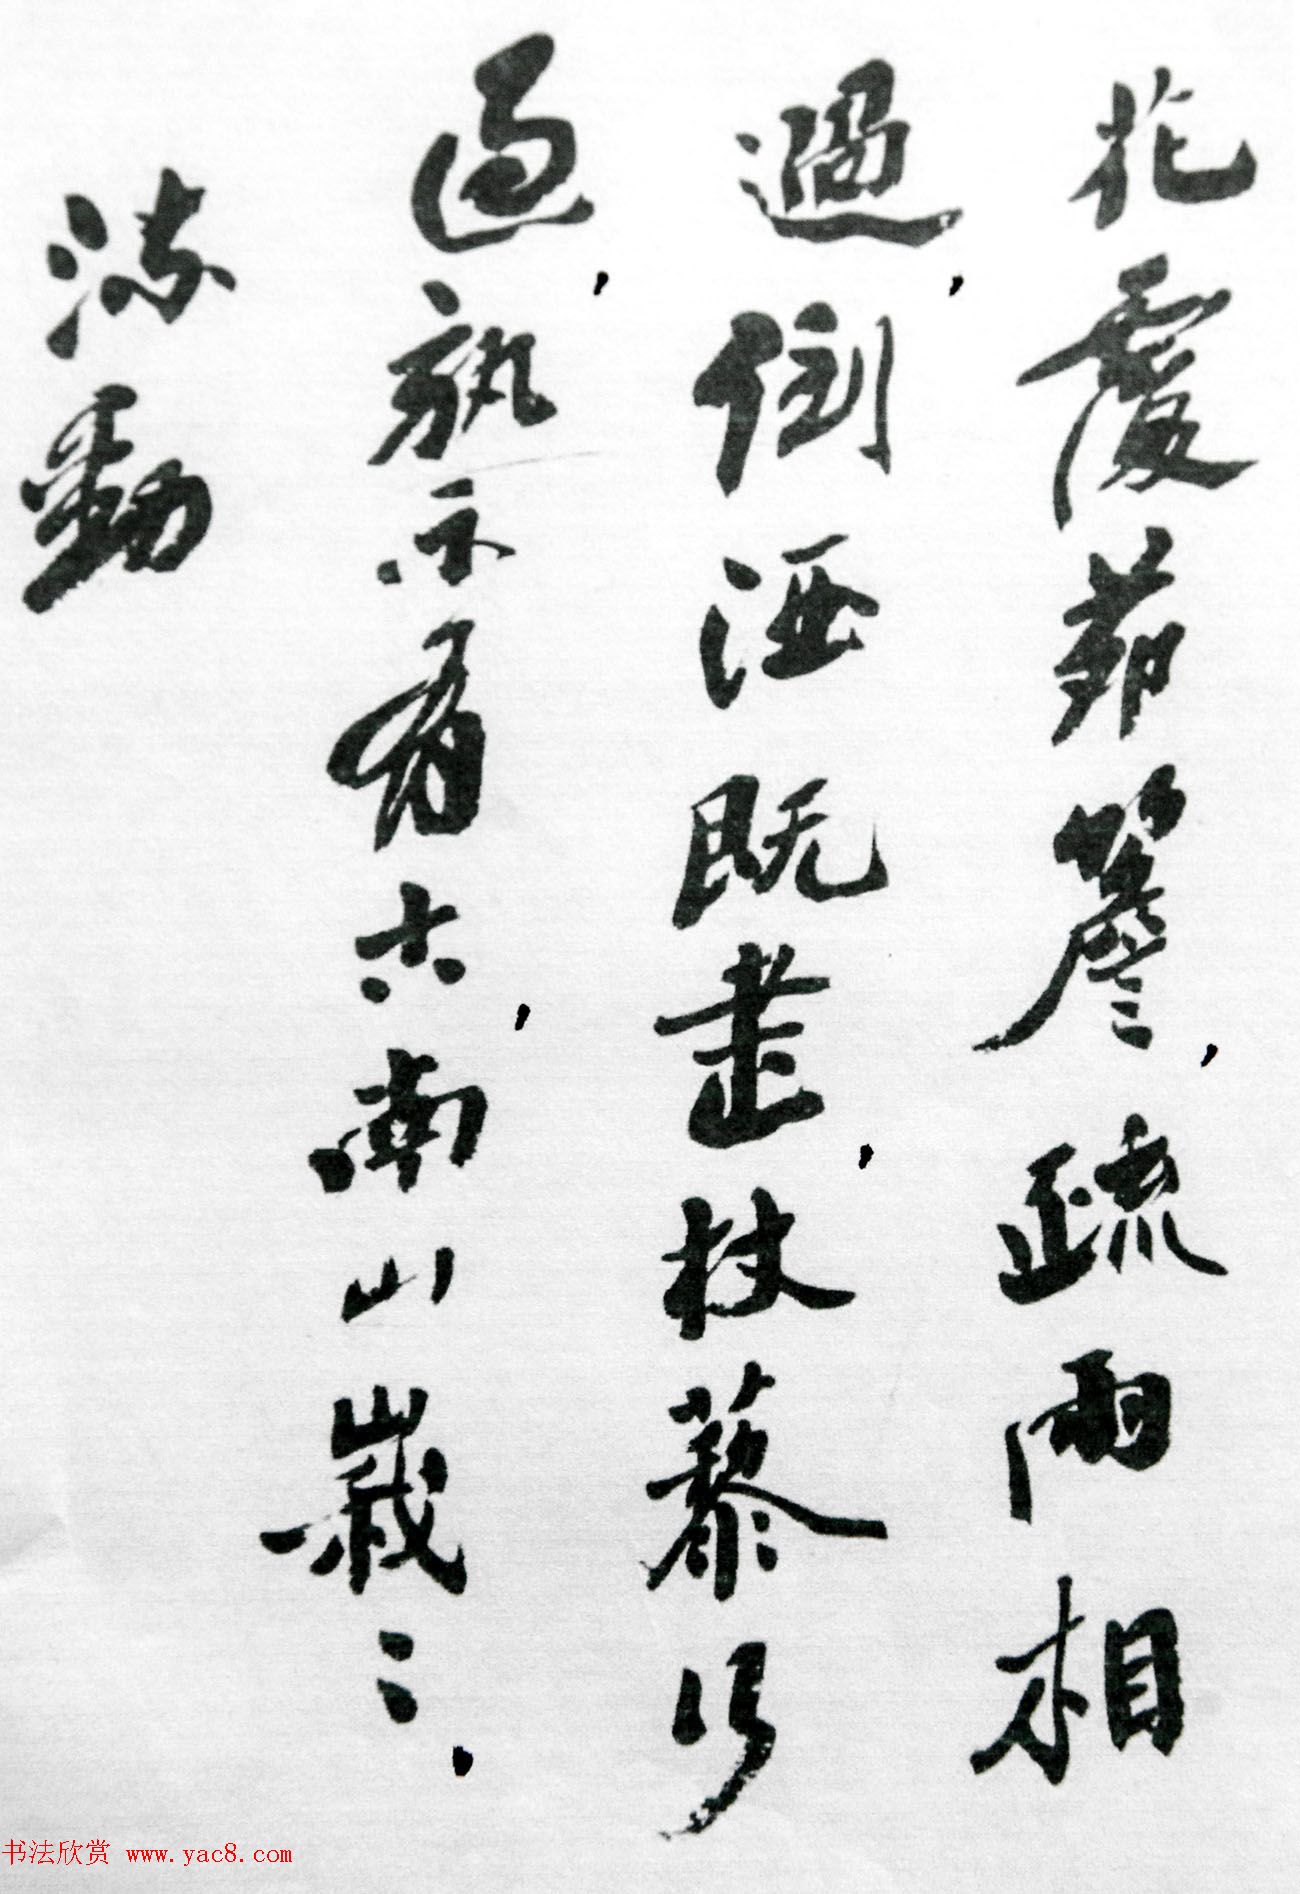 花覆茆簷，疏雨相
過，倒酒既盡，杖藜行
過，孰不有古，南山峩〻，
流動
书法欣赏 www.yac8.com